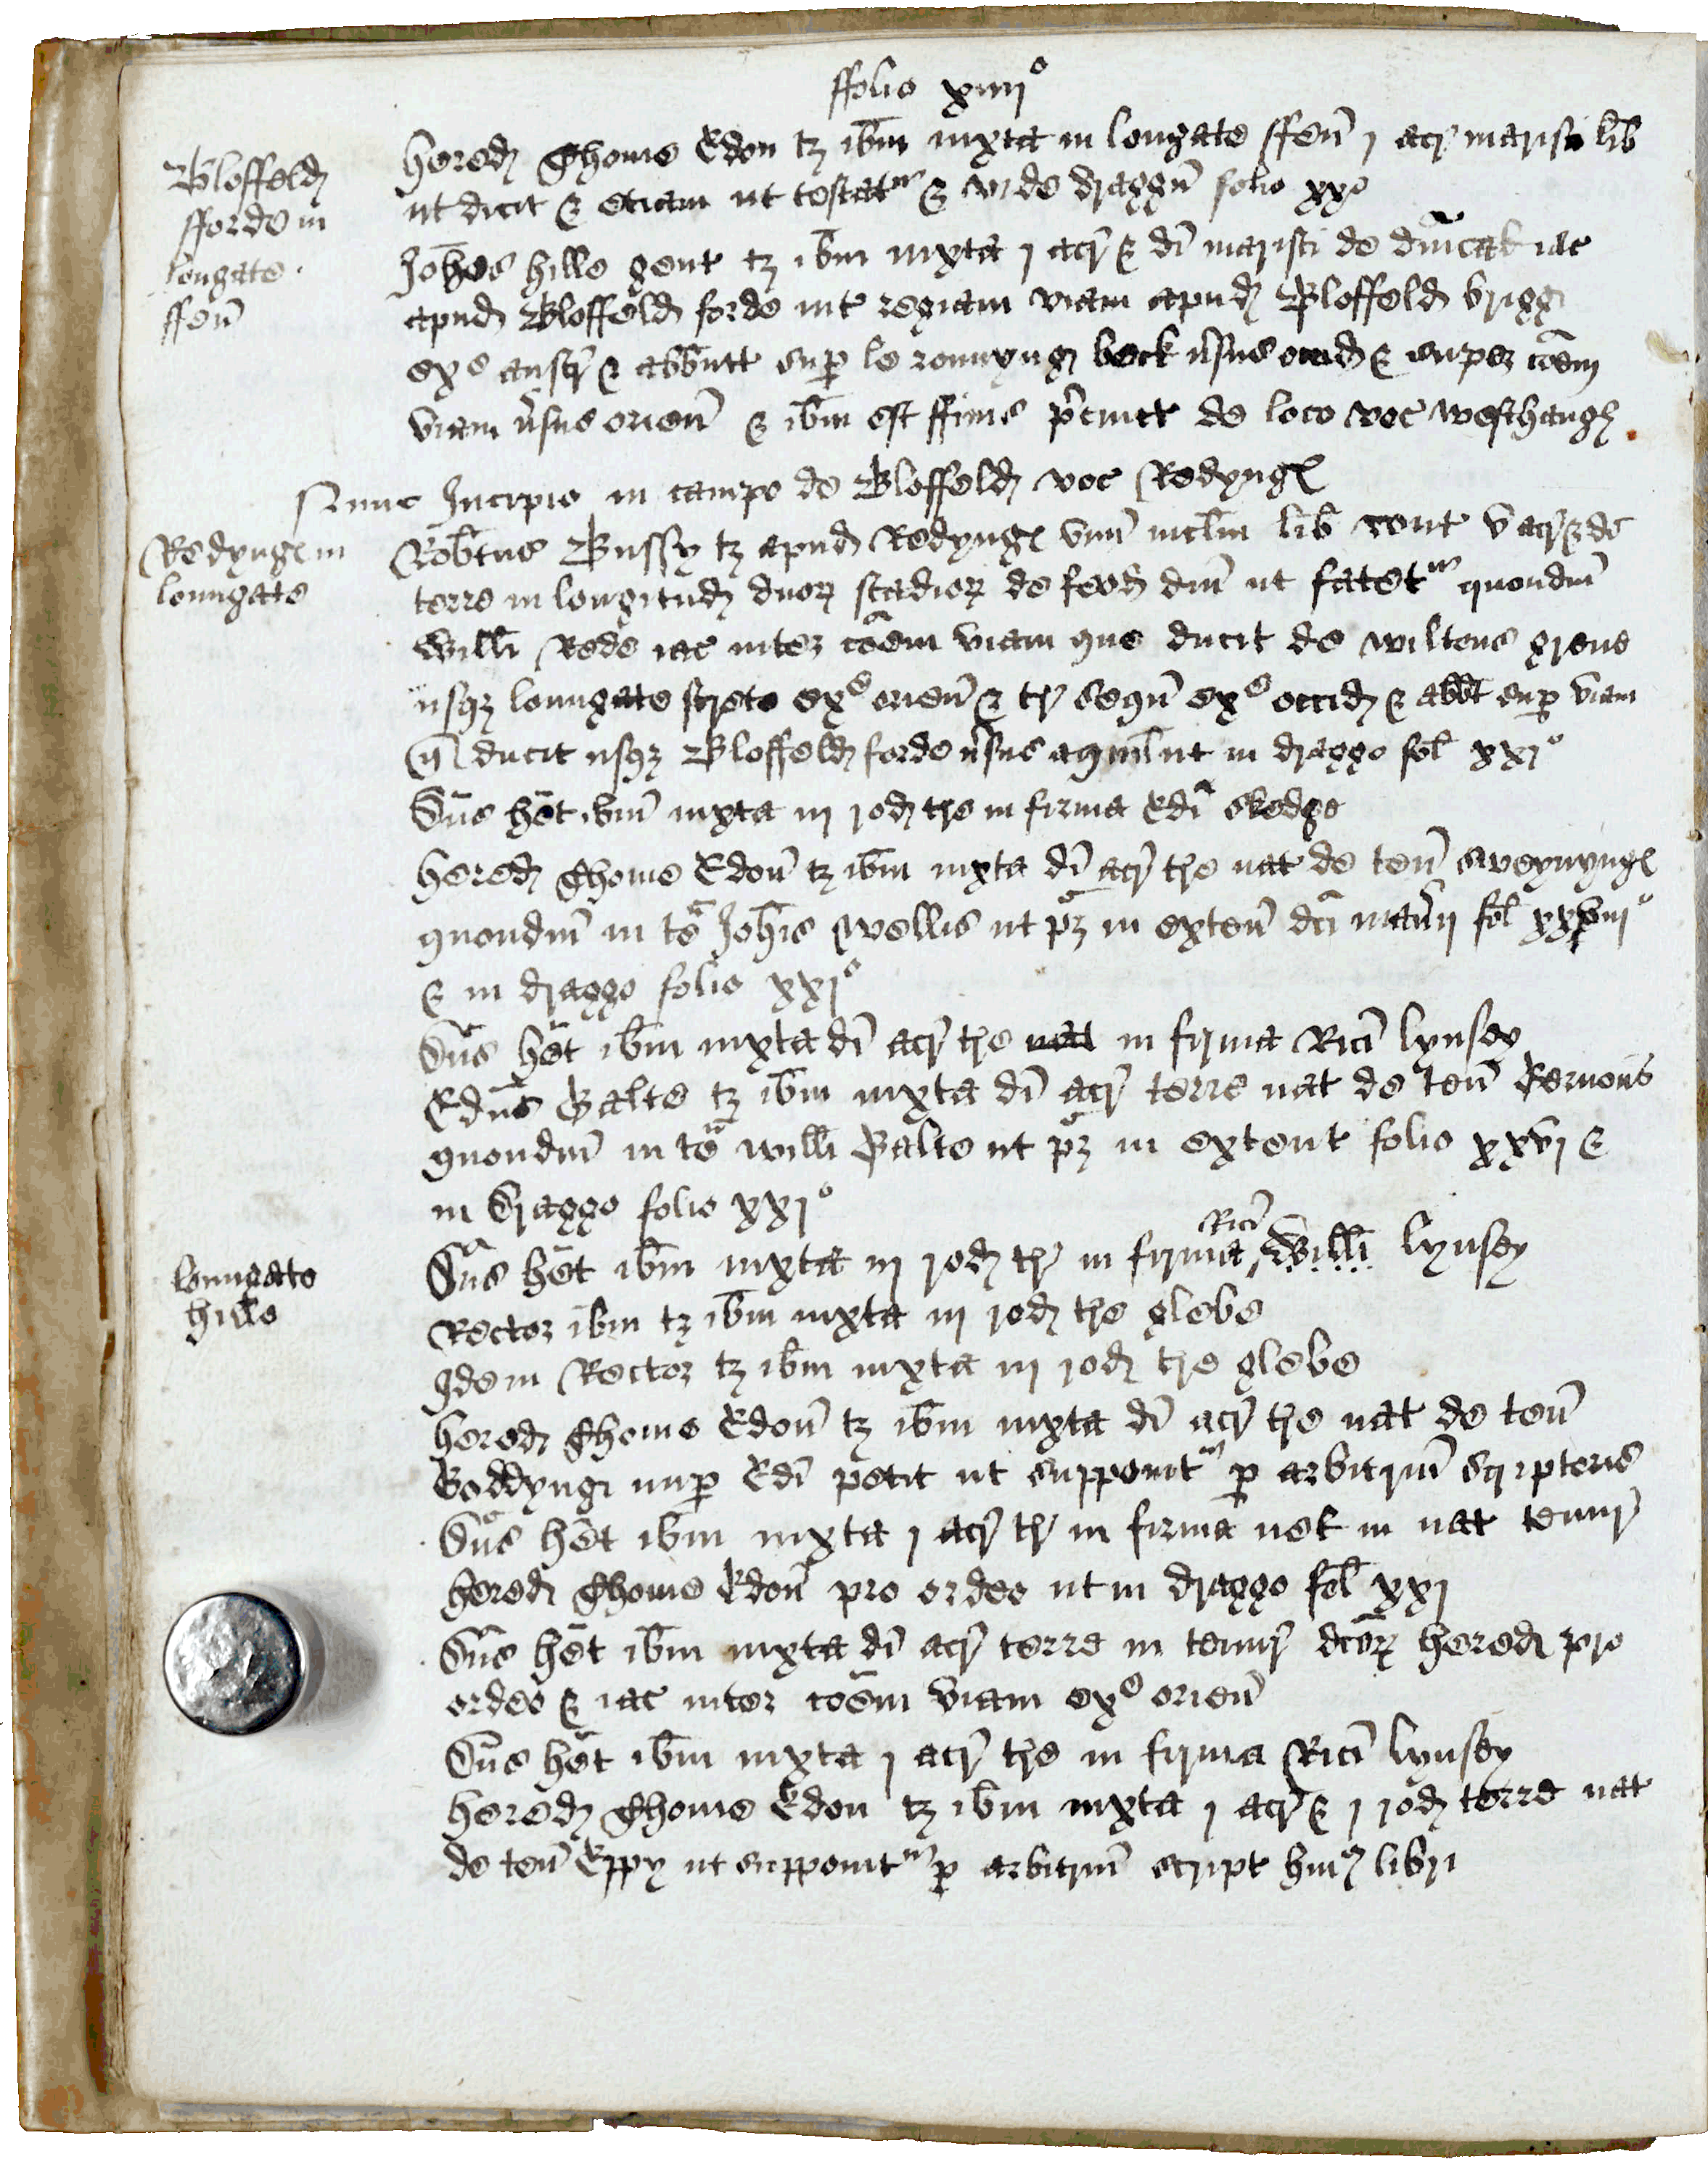 ffolio xiiijº
Bloffeld
fforde in
longate
ffen
hered Thome Edon tz ibm iuxta in longate ffen j acr marisci lib
ut dicit & etiam ut testatur & vide draggu folio xxº
Johes hille gent tz ibm iuxta j acr & di marisci de iac
apud Bloffeld forde int regiam viam apud Bloffeld brigg
exº austr & abbutt sup le ronnyng beck usus occid & super coem
viam usus orien & ibm est ffinis pcinct de loco voc westhaugh
Nunc Incipio in campo de Bloffeld voc Redyng
Redyng in
loungate
Robtus Bussy tz apud Redyng unu mclm lib cont v acr & di
terre in longitud duor stadior de feod dni ut fatetur quondm
Willi Rede iac inter coem viam que ducit de wiltons grene
usqz loungate strete exº orien & tr sequ exº occid & abbt sup viam
q ducit usqz Bloffeld forde usus aquil ut in draggo fol xxjº
Dns het ibm iuxta iij rod tre in firma Edi skegge
hered Thome Edon tz ibm iuxta di acr tre nat de ten sweynyng
quondm in te Johis Wellis ut pz in exten dci maner fol xxviijº
& in draggo folio xxjº
Dns het ibm iuxta di acr tre nat in firma Rici lynsey
Edus Balte tz ibm iuxta di acr terre nat de ten
quondm in te willi Balte ut pz in extent folio xxvj &
in draggo folio xxjº
loungate
hille
Dns het ibm iuxta iij rod tr in firma Rici Willi lynsey
Rector ibm tz ibm iuxta iij rod tre glebe
Idem Rector tz ibm iuxta iij rod tre glebe
hered Thome Edon tz ibm iuxta di acr tre nat de ten
Goddyng nup Edi petit ut supponitur p arbitrium scriptoris
Dns het ibm iuxta j acr tr in firma in nat tenur
hered Thome Edon pro ordeo ut in draggo fol xxj
Dns het ibm iuxta di acr terre in tenur dcor hered pro
ordeo & iac inter coem viam exº orien
Dns het ibm iuxta j acr tre in firma Rici lynsey
hered Thome Edon tz ibm iuxta j acr & j rod terre nat
de ten Eppy ut supponitur p arbitrium script libri